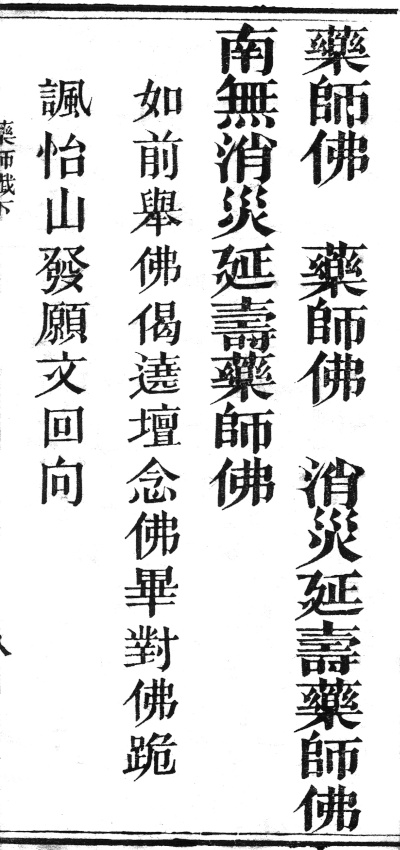 藥師佛　藥師佛　消災延壽藥師佛
南無消災延壽藥師佛
如前舉佛偈遶壇念佛畢對佛跪
諷怡山發願文回向
藥師懺下